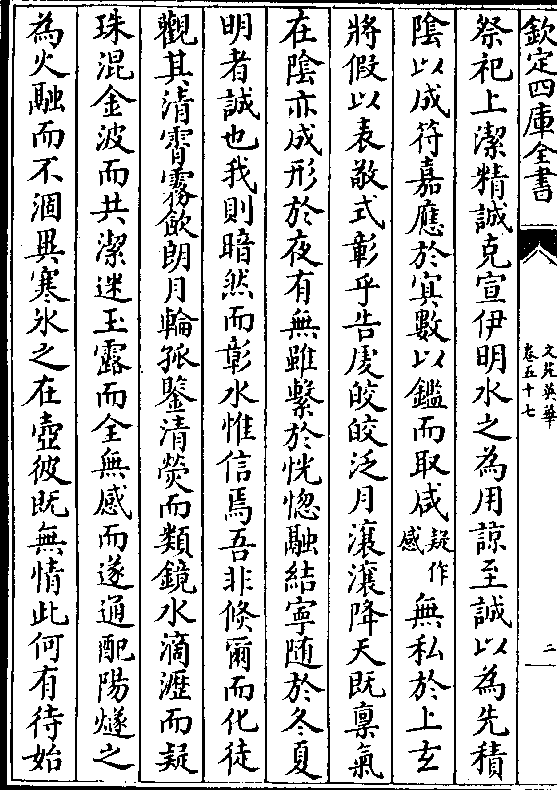 欽定四庫全書
文苑英華
卷五十七
二
祭祀上潔精誠克宣伊明水之為用諒至誠以為先積
陰以成符嘉應於冥數以鑑而取咸疑作感無私於上玄
將假以表敬式彰乎告䖍皎皎泛月瀼瀼降天既稟氣
在陰亦成形於夜有無雖繫於恍惚融結寧随於冬夏
明者誠也我則暗然而彰水惟信焉吾非倐爾而化徒
觀其清霄霧歛朗月輪孤鑒清熒而類鏡水滴瀝而疑
珠混金波而共潔迷玉露而全無感而遂通配陽燧之
為火融而不涸異寒氷之在壺彼既無情此何有待始